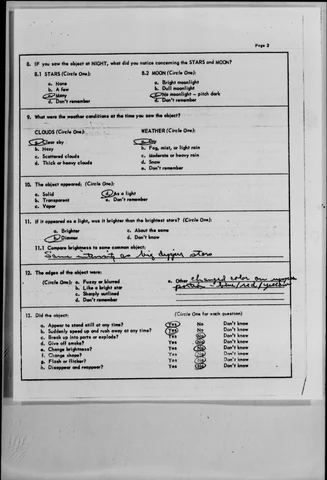 Page 2
8. IF you saw the object at NIGHT, what did you notice concerning the STARS and MOON?
8.1 STARS (Circle One): 8.2 MOON (Circle One):
a. None a. Bright moonlight
b. A few b. Dull moonlight
c. Many c. No moonlight – pitch dark
d. Don't remember d. Don't remember
9. What were the weather conditions at the time you saw the object?
CLOUDS (Circle One): WEATHER (Circle One):
a. Clear sky a. Dry
b. Hazy b. Fog, mist, or light rain
c. Scattered clouds c. Moderate or heavy rain
d. Thick or heavy clouds d. Snow
e. Don't remember
10. The object appeared: (Circle One):
a. Solid d. As a light
b. Transparent e. Don't remember
c. Vapor
11. If it appeared as a light, was it brighter than the brightest stars? (Circle One):
a. Brighter c. About the same
b. Dimmer d. Don't know
11.1 Compare brightness to some common object:
Same intensity as big dipper stars
12. The edges of the object were:
(Circle One): a. Fuzzy or blurred e. Other changed color on
b. Like a bright star blue/red/yellow
c. Sharply outlined
d. Don't remember
13. Did the object: (Circle One for each question)
a. Appear to stand still at any time? Yes No Don't know
b. Suddenly speed up and rush away at any time? Yes No Don't know
c. Break up into parts or explode? Yes No Don't know
d. Give off smoke? Yes No Don't know
e. Change brightness? Yes No Don't know
f. Change shape? Yes No Don't know
g. Flash or flicker? Yes No Don't know
h. Disappear and reappear? Yes No Don't know